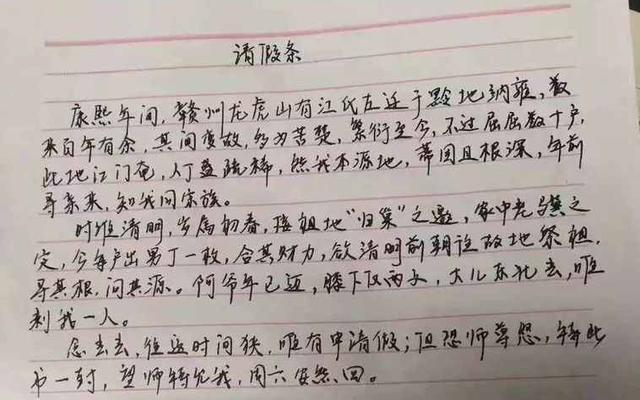 请假条
康熙年间,赣州龙虎山有江氏左迁于黔地纳雍,数
来百年有余,其间变故,多为苦楚,繁衍至今,不过屈屈数十户,
此地江门奄,人丁盈疏稀,然我本源地,蒂固且根深,年前
寻亲来,知我同宗族。
时维清明,岁属初春,接祖地“归巢”之邀,家中老
定,今每户出男丁一枚,合其财力,欲清明前朝诣故地祭祖,
寻其根,问其源。阿爷年已迈,膝下仅两子,大儿东北去,唯
剩我一人。
念去去,往返时间狭,唯有申请假;但恐师尊怒,特此
书一封,望师特允我,周六安然回。